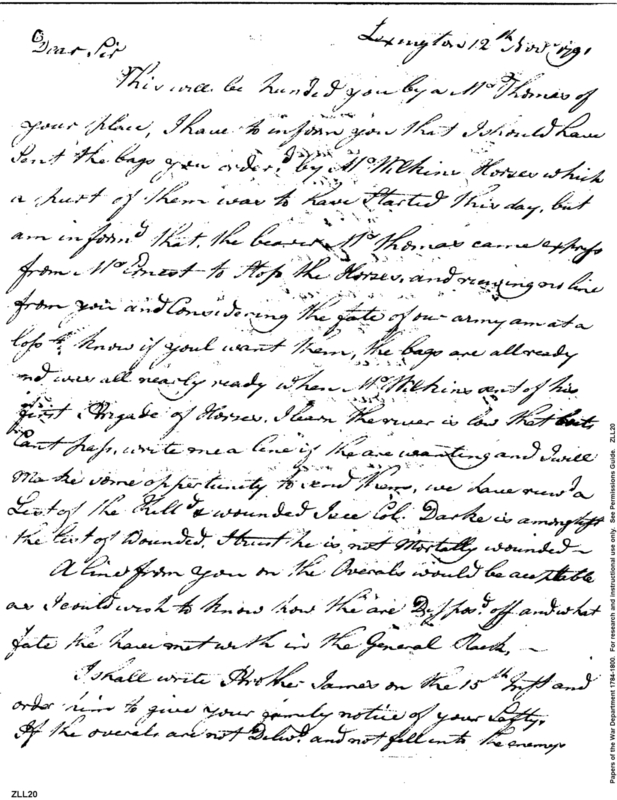 Lexington 12th Novr 1791
Dear Sir
This will be handed you by a Mr Thomas of
your place, I have to inform you that I should have
Sent the bags you order'd by Mr Wilkins Horses which
a part of them was to have Started this day, but
am inform'd that, the bearer Mr Thomas came express
from Mr Ernest to Stop the Horses, and receiving no line
from you and Considering the fate of our army am at a
loss to know if youl want them, the bags are all ready
nd was all nearly ready when Mr Wilkins sent of his
first Brigade of Horses. I learn the river is low that boats
Cant pass, write me a line if the are wanting and I will
make some opportunity to send them, we have recv'd a
List of the Kill'd & wounded I see Col. Darke is amongst
the list of Wounded. I trust he is not Mortally wounded ~
A line from you on the Overals would be acceptable
as I could wish to know how the are Disspos'd off and what
fate the have met with in the General ~
I shall write Brother James on the 15th Inst and
order him to give your family notice of your Safty.
If the overals are not Deliv'd and not fell into the enemys
ZLL20
Papers of the War Department 1784-1800. For research and instructional use only. See Permissions Guide. ZLL20